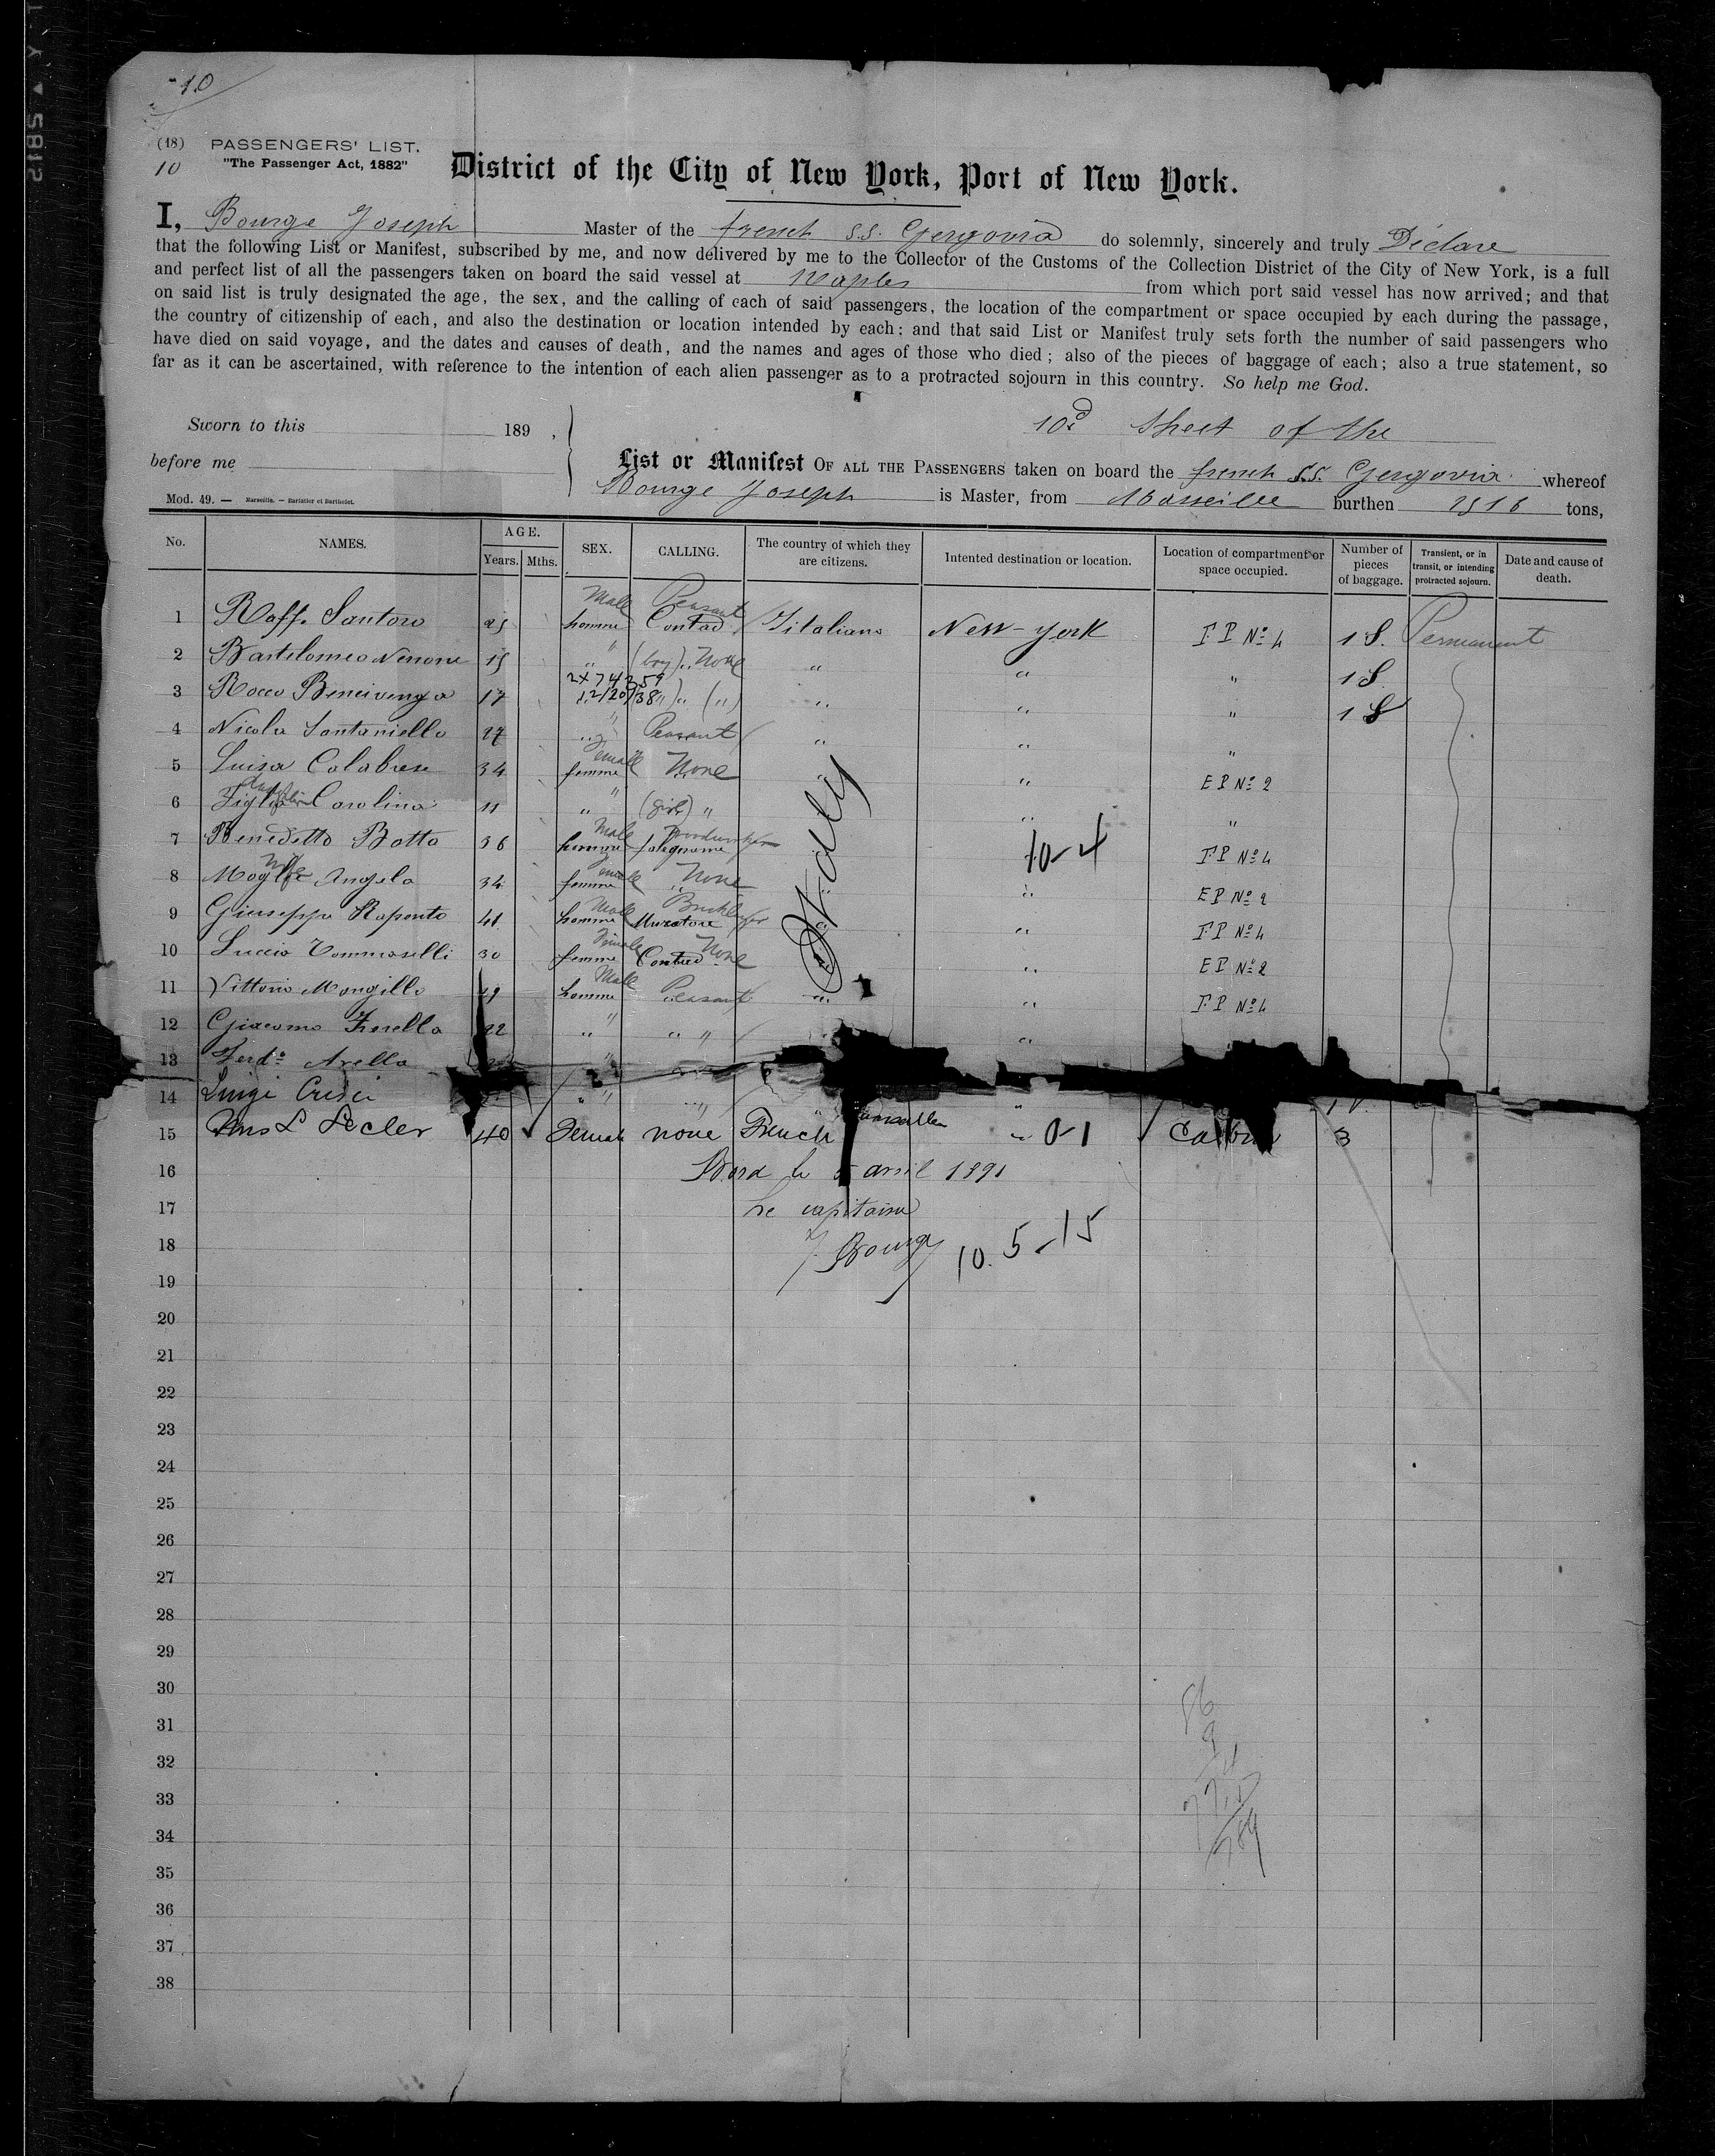 10
(18) PASSENGERS' LIST.
10 "The Passenger Act, 1882"
District of the City of New York, Port of New York.
I, Bourge Joseph Master of the french S.S. Gergovia do solemnly, sincerely and truly Déclare
that the following List or Manifest, subscribed by me, and now delivered by me to the Collector of the Customs of the Collection District of the City of New York, is a full
and perfect list of all the passengers taken on board the said vessel at Naples from which port said vessel has now arrived; and that
on said list is truly designated the age, the sex, and the calling of each of said passengers, the location of the compartment or space occupied by each during the passage,
the country of citizenship of each, and also the destination or location intended by each; and that said List or Manifest truly sets forth the number of said passengers who
have died on said voyage, and the dates and causes of death, and the names and ages of those who died; also of the pieces of baggage of each; also a true statement, so
far as it can be ascertained, with reference to the intention of each alien passenger as to a protracted sojourn in this country. So help me God.
Sworn to this 189 ,
before me
10d Sheet of the
List or Manifest OF ALL THE PASSENGERS taken on board the french S.S. Gergovia whereof
Bourge Joseph is Master, from Marseille burthen tons,
Mod. 49. — Marseille. — Barlatier et Barthelet.
No. NAMES. AGE. Years. Mths. SEX. CALLING. The country of which they are citizens. Intented destination or location. Location of compartment or space occupied. Number of pieces of baggage. Transient, or in transit, or intending protracted sojourn. Date and cause of death.
1 Raff. Santoro 25 homme Male Contad. Peasant Itiliano New-York F P Nº 4 1 S. Permanent
2 Bartolomeo Nerrone 15 " (boy) None " " " 1 S
2x74359
3 Rocco Bencivenga 17 " 12/20/38 " (") " " " 1 S
4 Nicola Santaniello 27 " Peasant " " "
5 Luisa Calabrese 34 femme Female None " " E P Nº 2
6 Figlia daughter Carolina 11 " (girl) " " "
7 Benedetto Botta 36 homme Male falegname Woodworker 10-4 F P Nº 4
8 Moglie Wife Angela 34 femme Female None " E P Nº 2
9 Giuseppe Raponto 41 homme Male Muratore Bricklayer " F P Nº 4
10 Luccia Tommaselli 30 femme Female Contad. None " E P Nº 2
11 Vittorio Mongillo homme Male Peasant " " F P Nº 4
Italy
12 Giacomo Fiorella 22 " " "
13 Ferdº Arella "
14 Luigi Crisci " " "
15 Mrs L Lecler 40 Female none French Marseilles " 0-1 Cabin 3
16 Bord le 5 avril 1891
17 Le capitaine
18 J. Bourge 10. 5-15
19
20
21
22
23
24
25
26
27
28
29
30
31
32
33
34
35
36
37
38